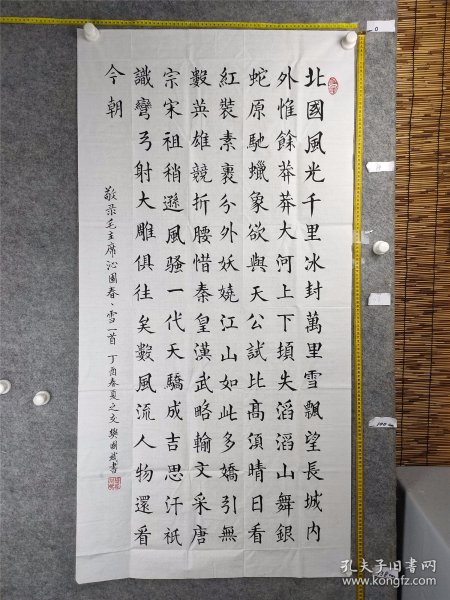 北國風光千里冰封萬里雪飄望長城内
外惟餘莽莽大河上下頓失滔滔山舞銀
蛇原馳蠟象欲與天公試比髙須晴日看
紅裝素裹分外妖嬈江山如此多嬌引無
數英雄競折腰惜秦皇漢武略輸文采唐
宗宋祖稍遜風騷一代天驕成吉思汗祇
識彎弓射大雕俱往矣數風流人物還看
今朝
敬录毛主席沁園春·雪一首 丁酉春夏之交 樊國
孔夫子旧书网
kongfz.com